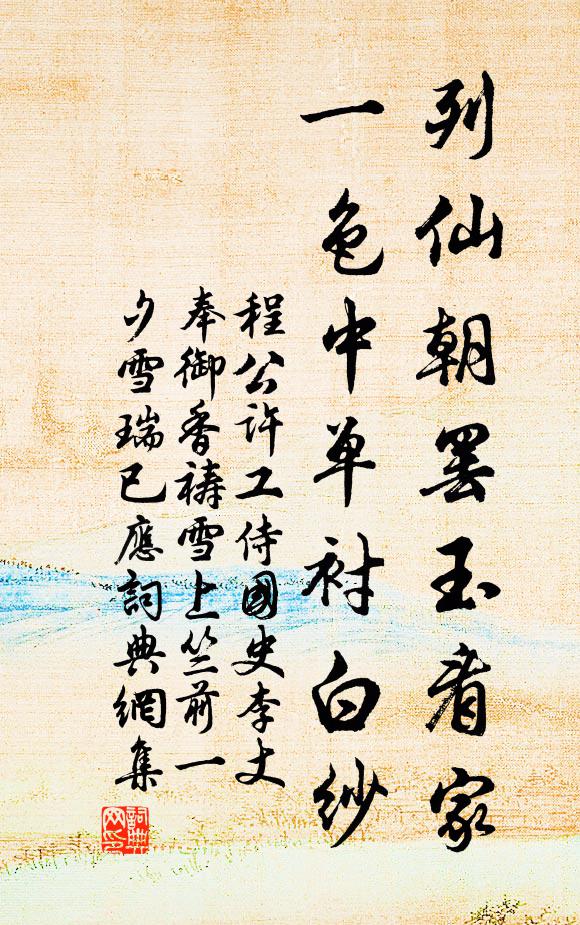 列仙朝罢玉者家
一色中单衬白纱
程公许工侍國史李丈
奉御香禱雪上竺前一
夕雪瑞已應詞典網集
詞典
网印